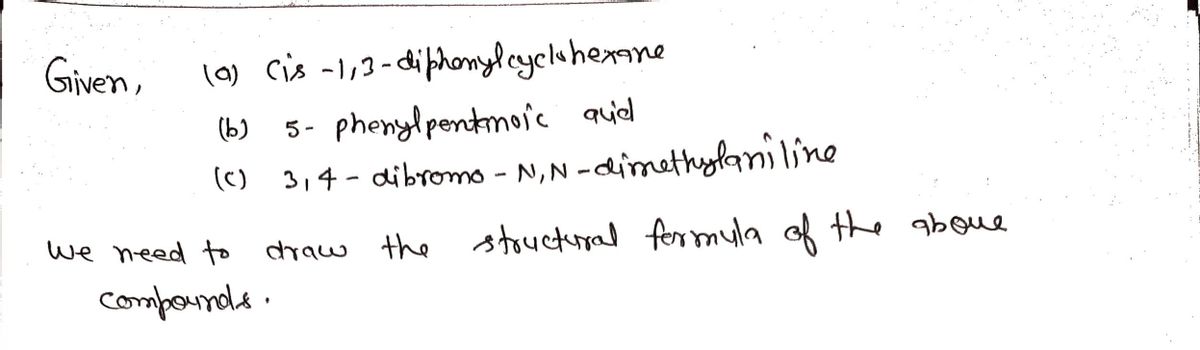 Given, (a) Cis -1,3-diphenylcyclohexane
(b) 5- phenylpentanoic acid
(c) 3,4 - dibromo - N,N -dimethylaniline
We need to draw the structural formula of the above
compounds.